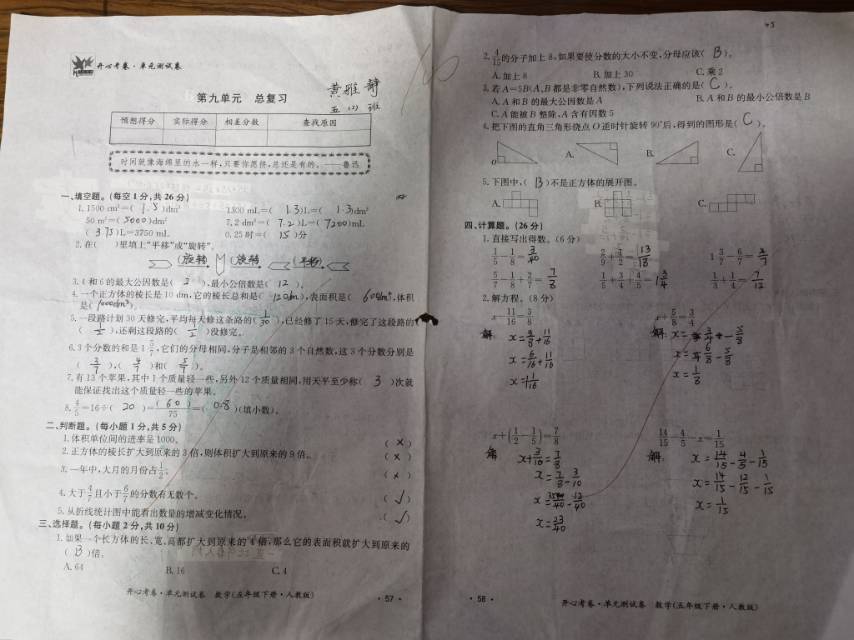 开心考卷·单元测试卷
第九单元 总复习
黄雅静
五(2)班
预想得分 实际得分 相差分数 查找原因
时间就像海绵里的水一样,只要你愿挤,总还是有的。——鲁迅
一、填空题。(每空1分,共26分)
1.1500 cm³=( 1.5 )dm³ 1300 mL=( 1.3 )L=( 1.3 )dm³
50 m³=( 5000 )dm³ 7.2 dm³=( 7.2 )L=( 7200 )mL
( 3.75 )L=3750 mL 0.25时=( 15 )分
2.在( )里填上“平移”或“旋转”。
(旋转) (旋转) (平移)
3.4和6的最大公因数是( 2 ),最小公倍数是( 12 )。
4.一个正方体的棱长是10 dm,它的棱长总和是( 120dm ),表面积是( 600dm² ),体积
是( 1000dm³ )。
5.一段路计划30天修完,平均每天修这条路的( 1/30 ),已经修了15天,修完了这段路的
( 1/2 ),还剩这段路的( 1/2 )没修完。
6.3个分数的和是1 5/7,它们的分母相同,分子是相邻的3个自然数,这3个分数分别是
( 3/7 )、( 4/7 )和( 5/7 )。
7.有13个苹果,其中1个质量轻一些,另外12个质量相同,用天平至少称( 3 )次就
能保证找出这个质量轻一些的苹果。
8.4/5=16÷( 20 )=( 60 )/75=( 0.8 )(填小数)。
二、判断题。(每小题1分,共5分)
1.体积单位间的进率是1000。 ( × )
2.正方体的棱长扩大到原来的3倍,则体积扩大到原来的9倍。 ( × )
3.一年中,大月的月份占1/2。 ( × )
4.大于4/7且小于6/7的分数有无数个。 ( √ )
5.从折线统计图中能看出数量的增减变化情况。 ( √ )
三、选择题。(每小题2分,共10分)
1.如果一个长方体的长、宽、高都扩大到原来的4倍,那么它的表面积就扩大到原来的
( B )倍。
A.64 B.16 C.4
开心考卷·单元测试卷 数学(五年级下册·人教版) ·57·
2.4/15的分子加上8,如果要使分数的大小不变,分母应该( B )。
A.加上8 B.加上30 C.乘2
3.若A=5B(A,B都是非零自然数),下列说法正确的是( C )。
A.A和B的最大公因数是A B.A和B的最小公倍数是B
C.A能被B整除,A含有因数5
4.把下图的直角三角形绕点O逆时针旋转90°后,得到的图形是( C )。
O A. B. C.
5.下图中,( B )不是正方体的展开图。
A. B. C.
四、计算题。(26分)
1.直接写出得数。(6分)
1/5-1/8=3/40 2/9+3/2=13/18 1 3/7-6/7=4/7
5/7-1/8+2/7=7/8 1/5+3/4+4/5=1 3/4 1/3+1/4=7/12
2.解方程。(8分)
x-11/16=3/8 x+5/8=3/4
解: x=3/8+11/16 解: x=3/4-5/8
x=6/16+11/16 x=6/8-5/8
x=1 1/16 x=1/8
x+(1/2-1/5)=7/8 14/15-4/5-x=1/15
解: x+3/10=7/8 解: x=14/15-4/5-1/15
x=7/8-3/10 x=14/15-12/15-1/15
x=35/40-12/40 x=1/15
x=23/40
·58· 开心考卷·单元测试卷 数学(五年级下册·人教版)